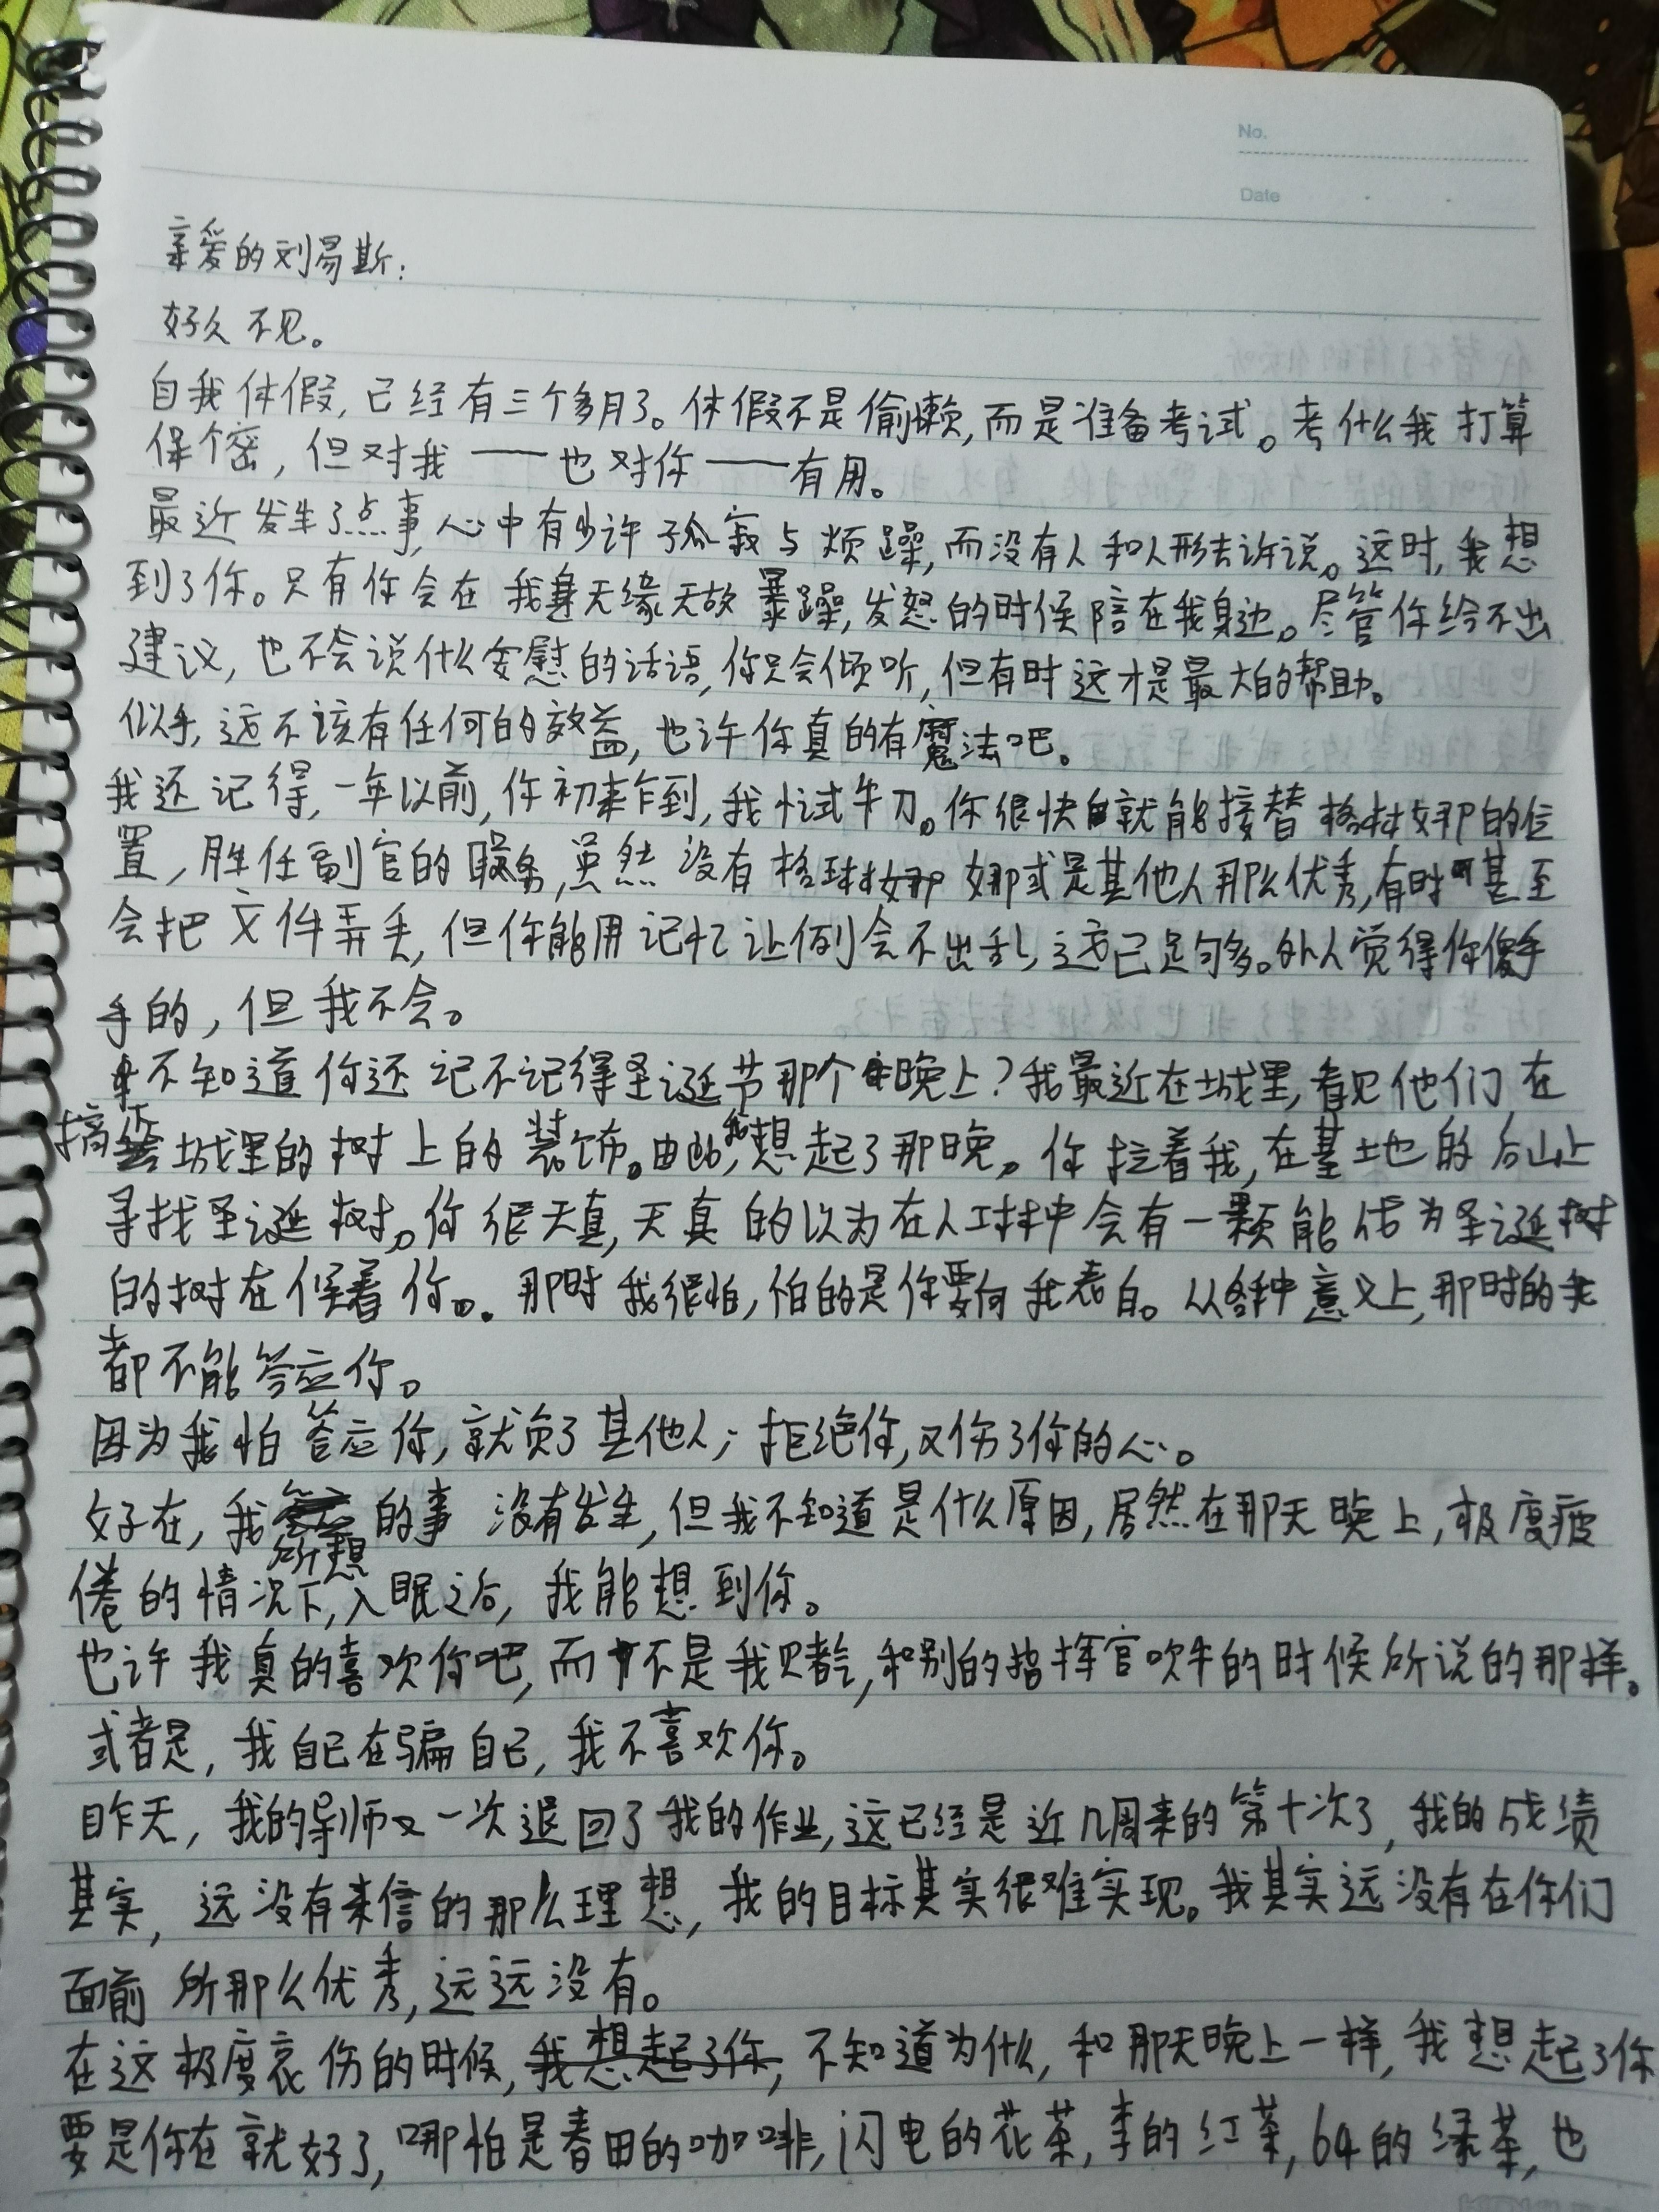 No.
Date
亲爱的刘易斯：
好久不见。
自我休假,已经有三个多月了。休假不是偷懒,而是准备考试。考什么我打算
保个密，但对我——也对你——有用。
最近发生了点事,心中有少许孤寂与烦躁,而没有人和人形去诉说。这时,我想
到了你。只有你会在我无缘无故暴躁,发怒的时候陪在我身边。尽管你给不出
建议,也不会说什么安慰的话语,你只会倾听,但有时这才是最大的帮助。
似乎,这不该有任何的效益,也许你真的有魔法吧。
我还记得,一年以前,你初来乍到,我小试牛刀。你很快就能接替格林娜的位
置,胜任副官的职务,虽然没有格林娜或是其他人那么优秀,有时甚至
会把文件弄丢,但你能用记忆让例会不出乱,这已足够多。外人觉得你傻乎
乎的,但我不会。
不知道你还记不记得圣诞节那个晚上?我最近在城里,看见他们在
摘城里的树上的装饰。由此,我想起了那晚。你拉着我,在基地的后山上
寻找圣诞树。你很天真,天真的以为在人工林中会有一颗能作为圣诞树
的树在候着你。那时我很怕,怕的是你要向我表白。从各种意义上,那时的我
都不能答应你。
因为我怕答应你,就负了其他人;拒绝你,又伤了你的心。
好在,我所想的事 没有发生,但我不知道是什么原因,居然在那天晚上,极度疲
倦的情况下,入眠之后,我能想到你。
也许我真的喜欢你吧,而不是我赌气,和别的指挥官吹牛的时候所说的那样。
或者是,我自己在骗自己,我不喜欢你。
昨天,我的导师又一次退回了我的作业,这已经是近几周来的第十次了,我的成绩
其实,远没有来信的那么理想,我的目标其实很难实现。我其实远没有在你们
面前所那么优秀,远远没有。
在这极度哀伤的时候,我想起了你,不知道为什么,和那天晚上一样,我想起了你
要是你在就好了,哪怕是春田的咖啡,闪电的花茶,李的红茶,64的绿茶,也